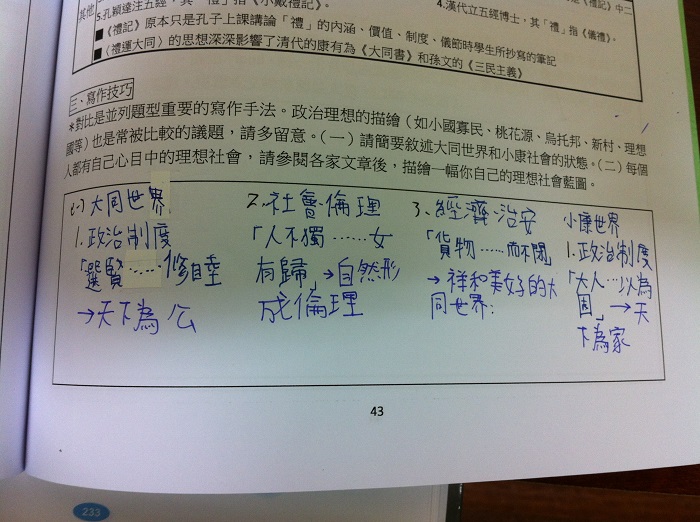 其他
5.孔穎達注五經，其「禮」指《小戴禮記》。
4.漢代立五經博士，其「禮」指《儀禮》。
■《禮記》原本只是孔子上課講論「禮」的內涵、價值、制度、儀節時學生所抄寫的筆記
■〈禮運大同〉的思想深深影響了清代的康有為《大同書》和孫文的《三民主義》
三、寫作技巧
*對比是並列題型重要的寫作手法。政治理想的描繪（如小國寡民、桃花源、烏托邦、新村、理想
國等）也是常被比較的議題，請多留意。（一）請簡要敘述大同世界和小康社會的狀態。（二）每個
人都有自己心目中的理想社會，請參閱各家文章後，描繪一幅你自己的理想社會藍圖。
(一)大同世界
1.政治制度
「選賢……修睦
→天下為公
2.社會倫理
「人不獨……女
有歸」→自然形
成倫理
3、經濟治安
「貨物……而不閉」
→祥和美好的大
同世界:
小康世界
1.政治制度
「大人…以為
固」→天
下為家
43
233